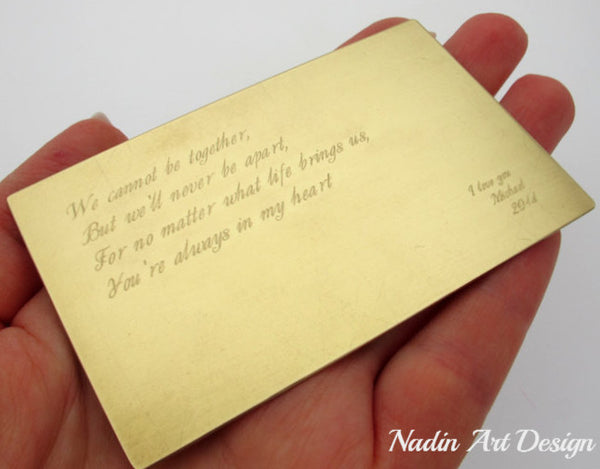 We cannot be together,
But we'll never be apart,
For no matter what life brings us,
You're always in my heart
I love you
Michael
2014
Nadin Art Design